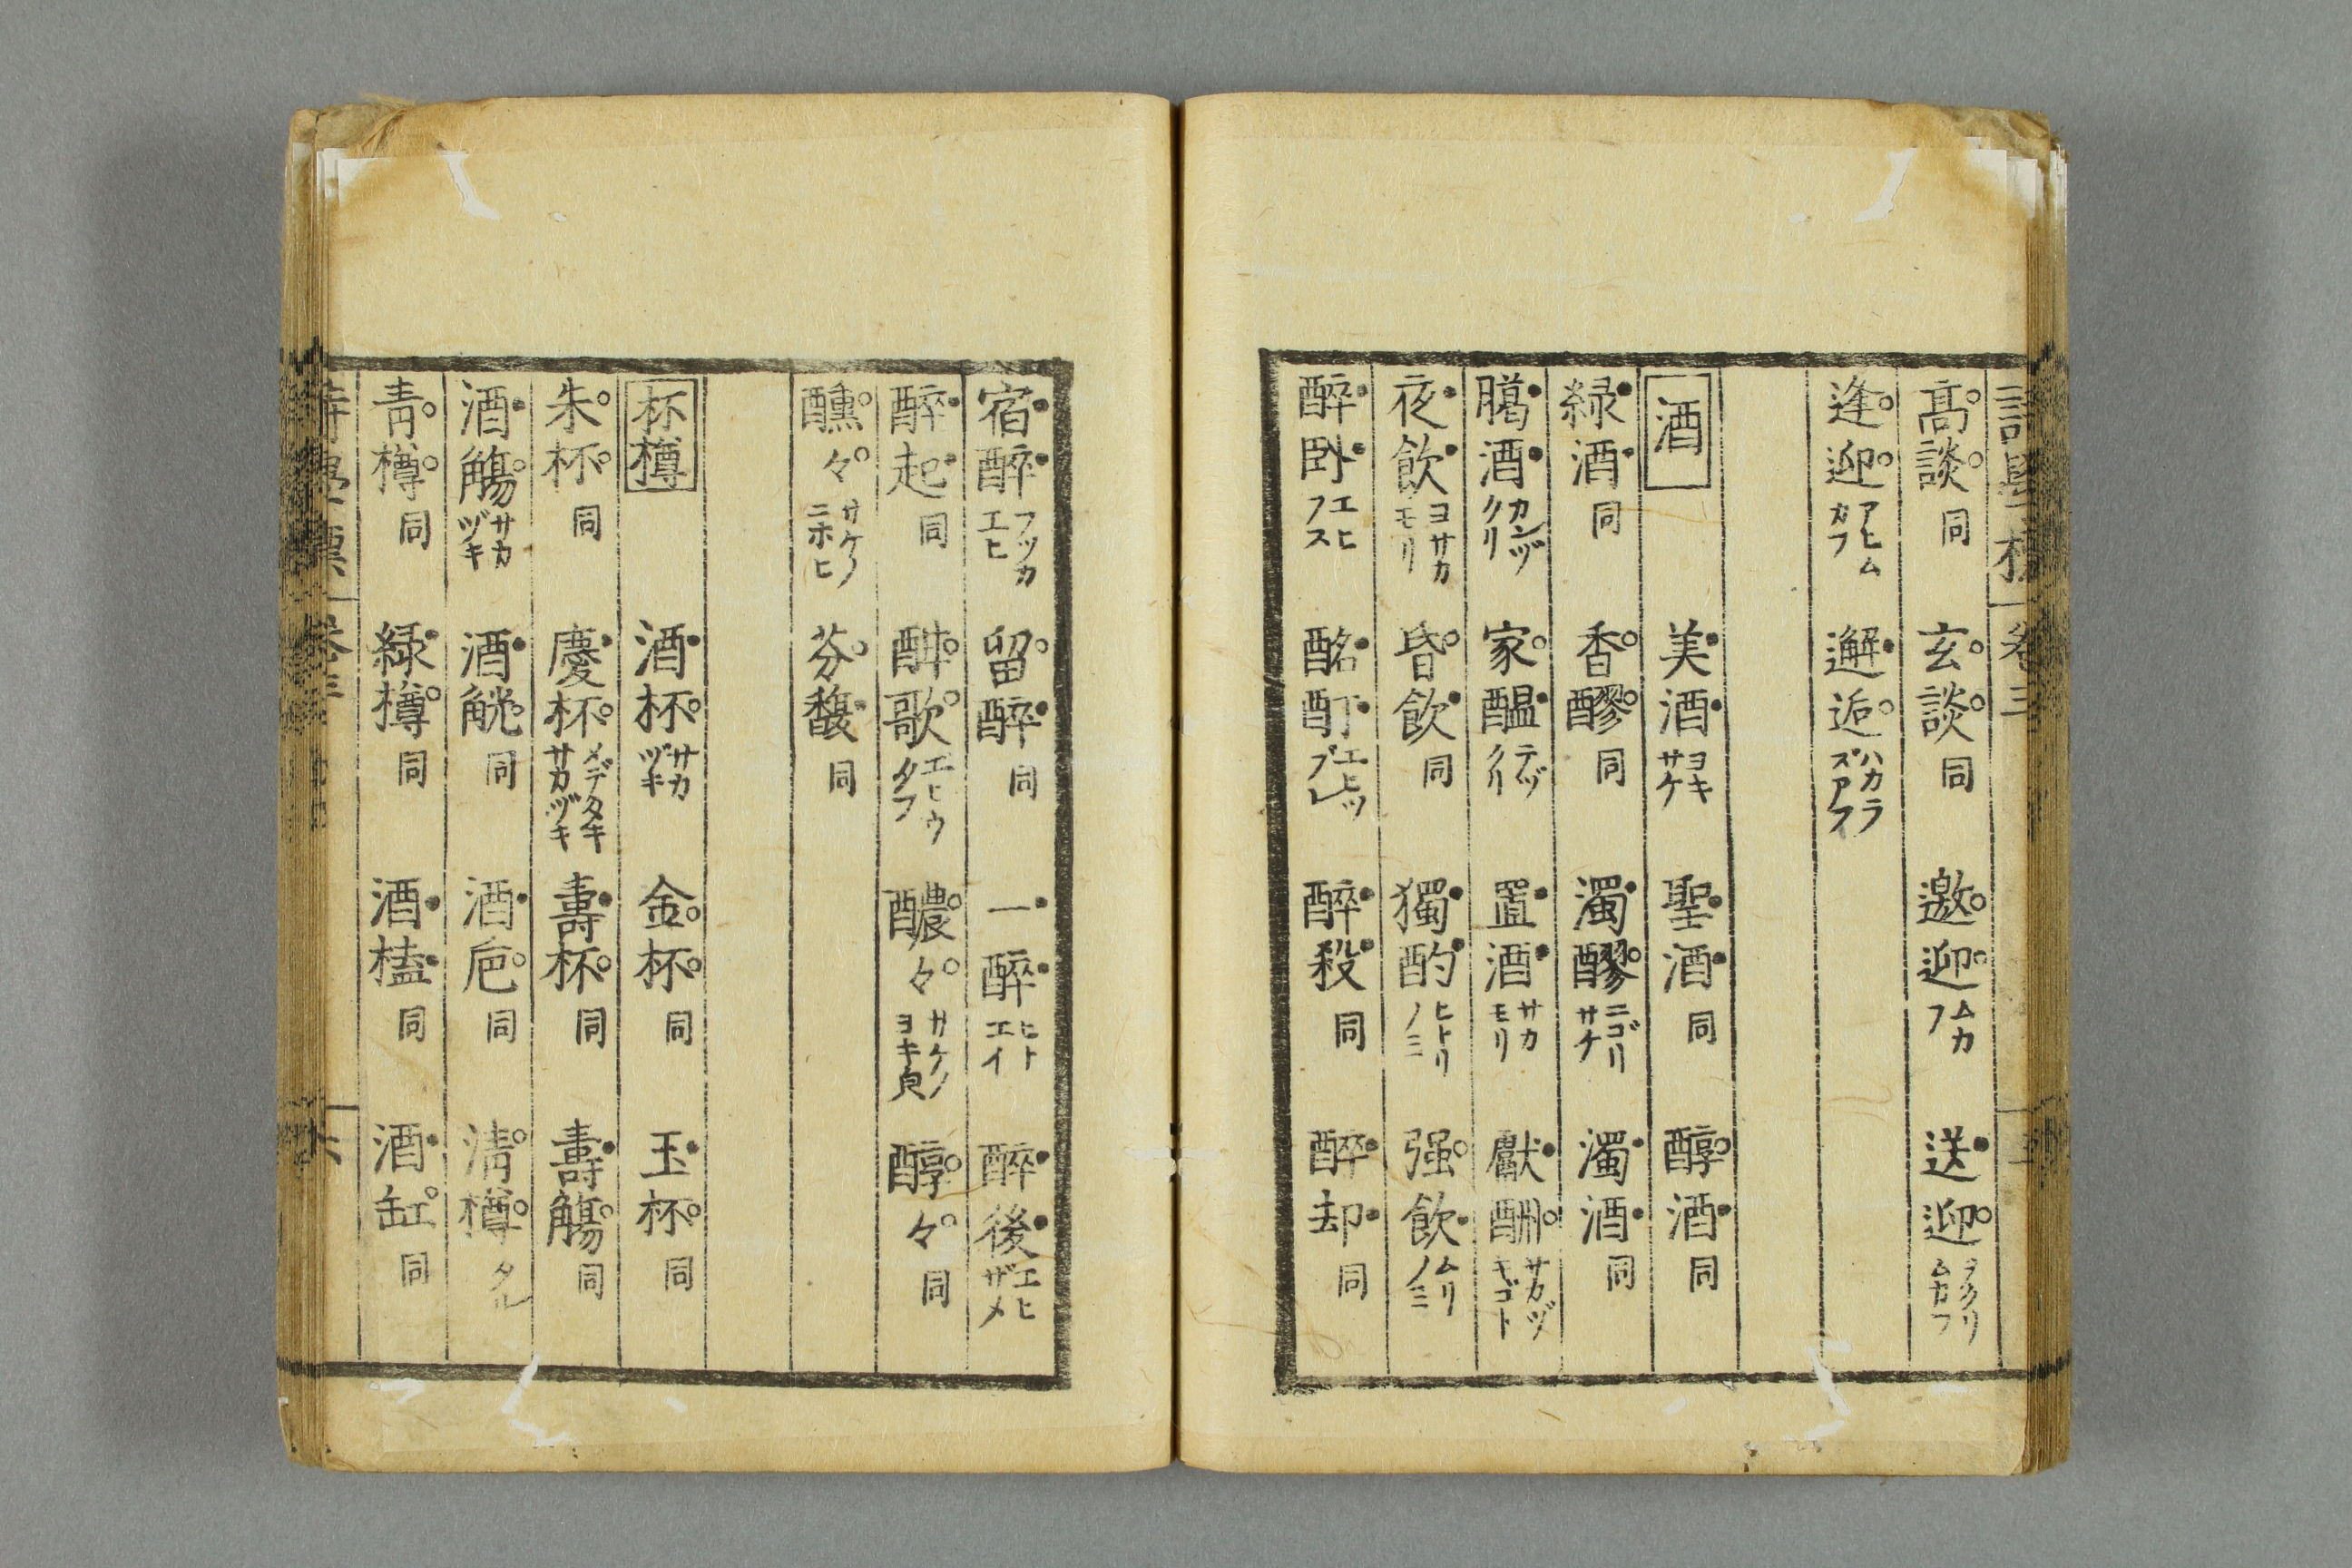 高談同 玄談同 邀迎ムカフ 送迎ヲクリムカフ
逢迎アヒムカフ 邂逅ハカラズアフ
酒 美酒ヨキサケ 聖酒同 醇酒同
緑酒同 香醪同 濁醪ニゴリサケ 濁酒同
臈酒カンヅクリ 家醖テヅクリ 置酒サカモリ 獻酬サカヅキゴト
夜飲ヨサカモリ 昏飲同 獨酌ヒトリノミ 强飲ムリノミ
醉卧エヒフス 酩酊エヒツブレ 醉殺同 醉却同
宿醉フツカエヒ 留醉同 一醉ヒトエイ 醉後エヒザメ
醉起同 酣歌エヒウタフ 醲々サケノヨキ皃 醇々同
醺々サケノニホヒ 芬馥同
杯樽 酒杯サカヅキ 金杯同 玉杯同
朱杯同 慶杯メデタキサカヅキ 壽杯同 壽觴同
酒觴サカヅキ 酒觥同 酒巵同 清樽タル
青樽同 緑樽同 酒榼同 酒缸同